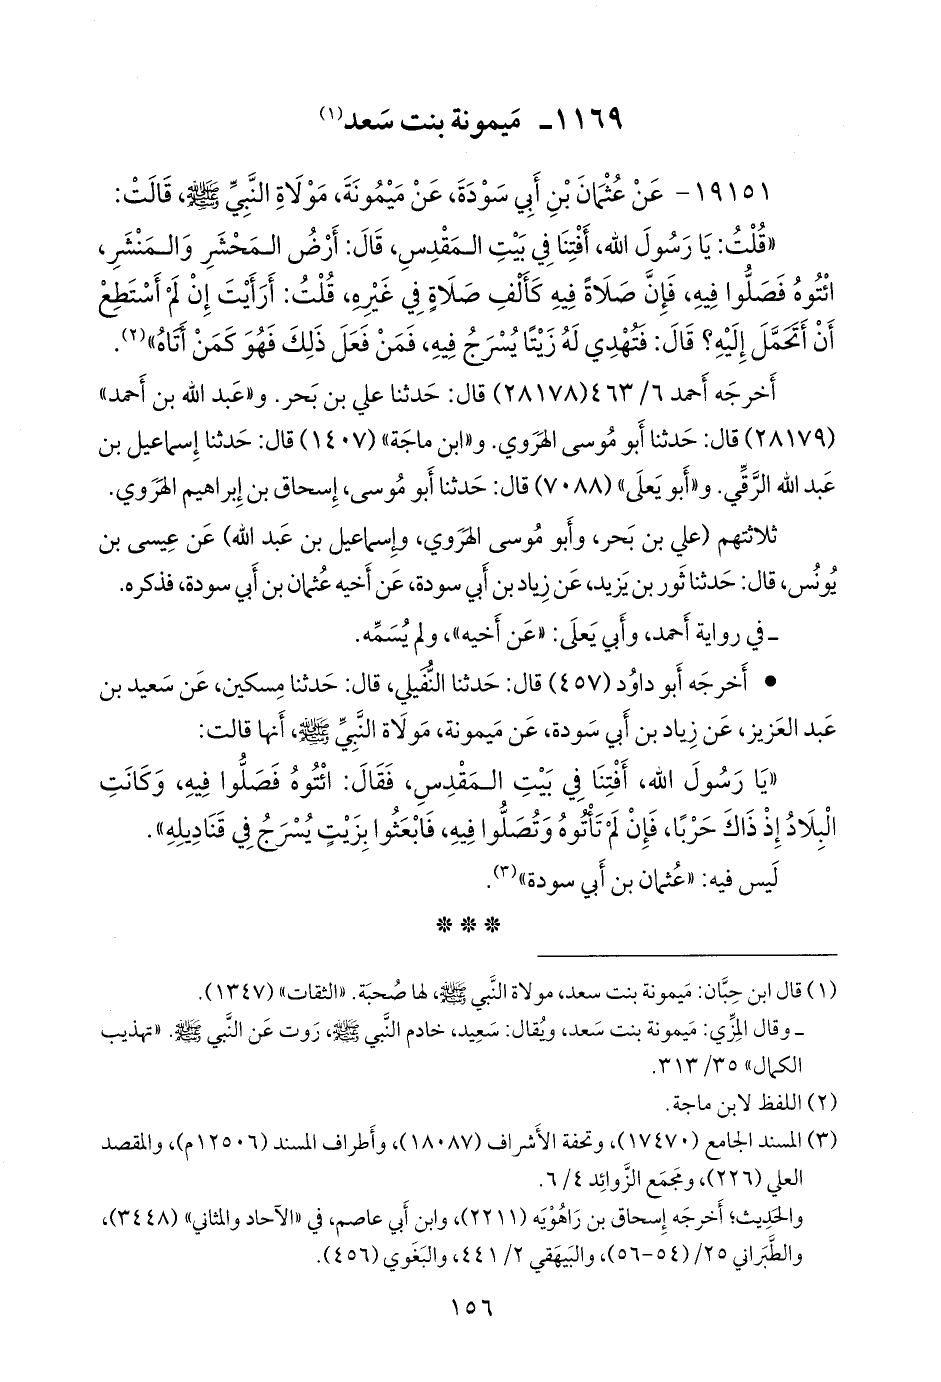 ١١٦٩ـ مَيمونة بنت سَعد(١)
١٩١٥١- عَنْ عُثْمَانَ بْنِ أَبِي سَوْدَةَ، عَنْ مَيْمُونَةَ، مَوْلَاةِ النَّبِيِّ ﷺ، قَالَتْ:
«قُلْتُ: يَا رَسُولَ الله، أَفْتِنَا فِي بَيْتِ الـمَقْدِسِ، قَالَ: أَرْضُ الـمَحْشَرِ وَالـمَنْشَرِ،
ائْتُوهُ فَصَلُّوا فِيهِ، فَإِنَّ صَلَاةً فِيهِ كَأَلْفِ صَلَاةٍ فِي غَيْرِهِ، قُلْتُ: أَرَأَيْتَ إِنْ لَمْ أَسْتَطِعْ
أَنْ أَتَحَمَّلَ إِلَيْهِ؟ قَالَ: فَتُهْدِي لَهُ زَيْتًا يُسْرَجُ فِيهِ، فَمَنْ فَعَلَ ذَلِكَ فَهُوَ كَمَنْ أَتَاهُ»(٢).
أَخرجَه أَحمد ٦/ ٤٦٣(٢٨١٧٨) قال: حَدثنا علي بن بَحر. و«عَبد الله بن أَحمد»
(٢٨١٧٩) قال: حَدثنا أَبو مُوسى الهَرَوي. و«ابن ماجَة» (١٤٠٧) قال: حَدثنا إِسماعيل بن
عَبد الله الرَّقِّي. و«أَبو يَعلَى» (٧٠٨٨) قال: حَدثنا أَبو مُوسى، إِسحاق بن إِبراهيم الهَرَوي.
ثلاثتهم (علي بن بَحر، وأَبو مُوسى الهَرَوي، وإِسماعيل بن عَبد الله) عَن عِيسى بن
يُونُس، قال: حَدثنا ثَور بن يَزيد، عَن زِياد بن أَبي سودة، عَن أَخيه عُثمان بن أَبي سودة، فذكره.
ـ في رواية أَحمد، وأَبي يَعلَى: «عَن أَخيه»، ولم يُسَمِّه.
• أَخرجَه أَبو داوُد (٤٥٧) قال: حَدثنا النُّفَيلي، قال: حَدثنا مِسكين، عَن سَعيد بن
عَبد العَزيز، عَن زِياد بن أَبي سَودة، عَن مَيمونة، مَولَاة النَّبِيِّ ﷺ، أَنها قالت:
«يَا رَسُولَ الله، أَفْتِنَا فِي بَيْتِ الـمَقْدِسِ، فَقَالَ: ائْتُوهُ فَصَلُّوا فِيهِ، وَكَانَتِ
الْبِلَادُ إِذْ ذَاكَ حَرْبًا، فَإِنْ لَمْ تَأْتُوهُ وَتُصَلُّوا فِيهِ، فَابْعَثُوا بِزَيْتٍ يُسْرَجُ فِي قَنَادِيلِهِ».
لَيس فيه: «عُثمان بن أَبي سودة»(٣).
* * *
(١) قال ابن حِبَّان: مَيمونة بنت سعد، مولاة النَّبي ﷺ، لها صُحبَة. «الثقات» (١٣٤٧).
ـ وقال المِزِّي: مَيمونة بنت سَعد، ويُقال: سَعِيد، خادم النَّبي ﷺ، رَوت عَن النَّبي ﷺ. «تهذيب
الكمال» ٣٥/ ٣١٣.
(٢) اللفظ لابن ماجة.
(٣) المسند الجامع (١٧٤٧٠)، وتحفة الأَشراف (١٨٠٨٧)، وأَطراف المسند (١٢٥٠٦م)، والمقصد
العلي (٢٢٦)، ومَجمَع الزَّوائِد ٤/ ٦.
والحَدِيث؛ أَخرجَه إِسحاق بن رَاهُوْيَه (٢٢١١)، وابن أَبي عاصم، في «الآحاد والمثاني» (٣٤٤٨)،
والطَّبَراني ٢٥/ (٥٤-٥٦)، والبَيهَقي ٢/ ٤٤١، والبَغَوي (٤٥٦).
١٥٦